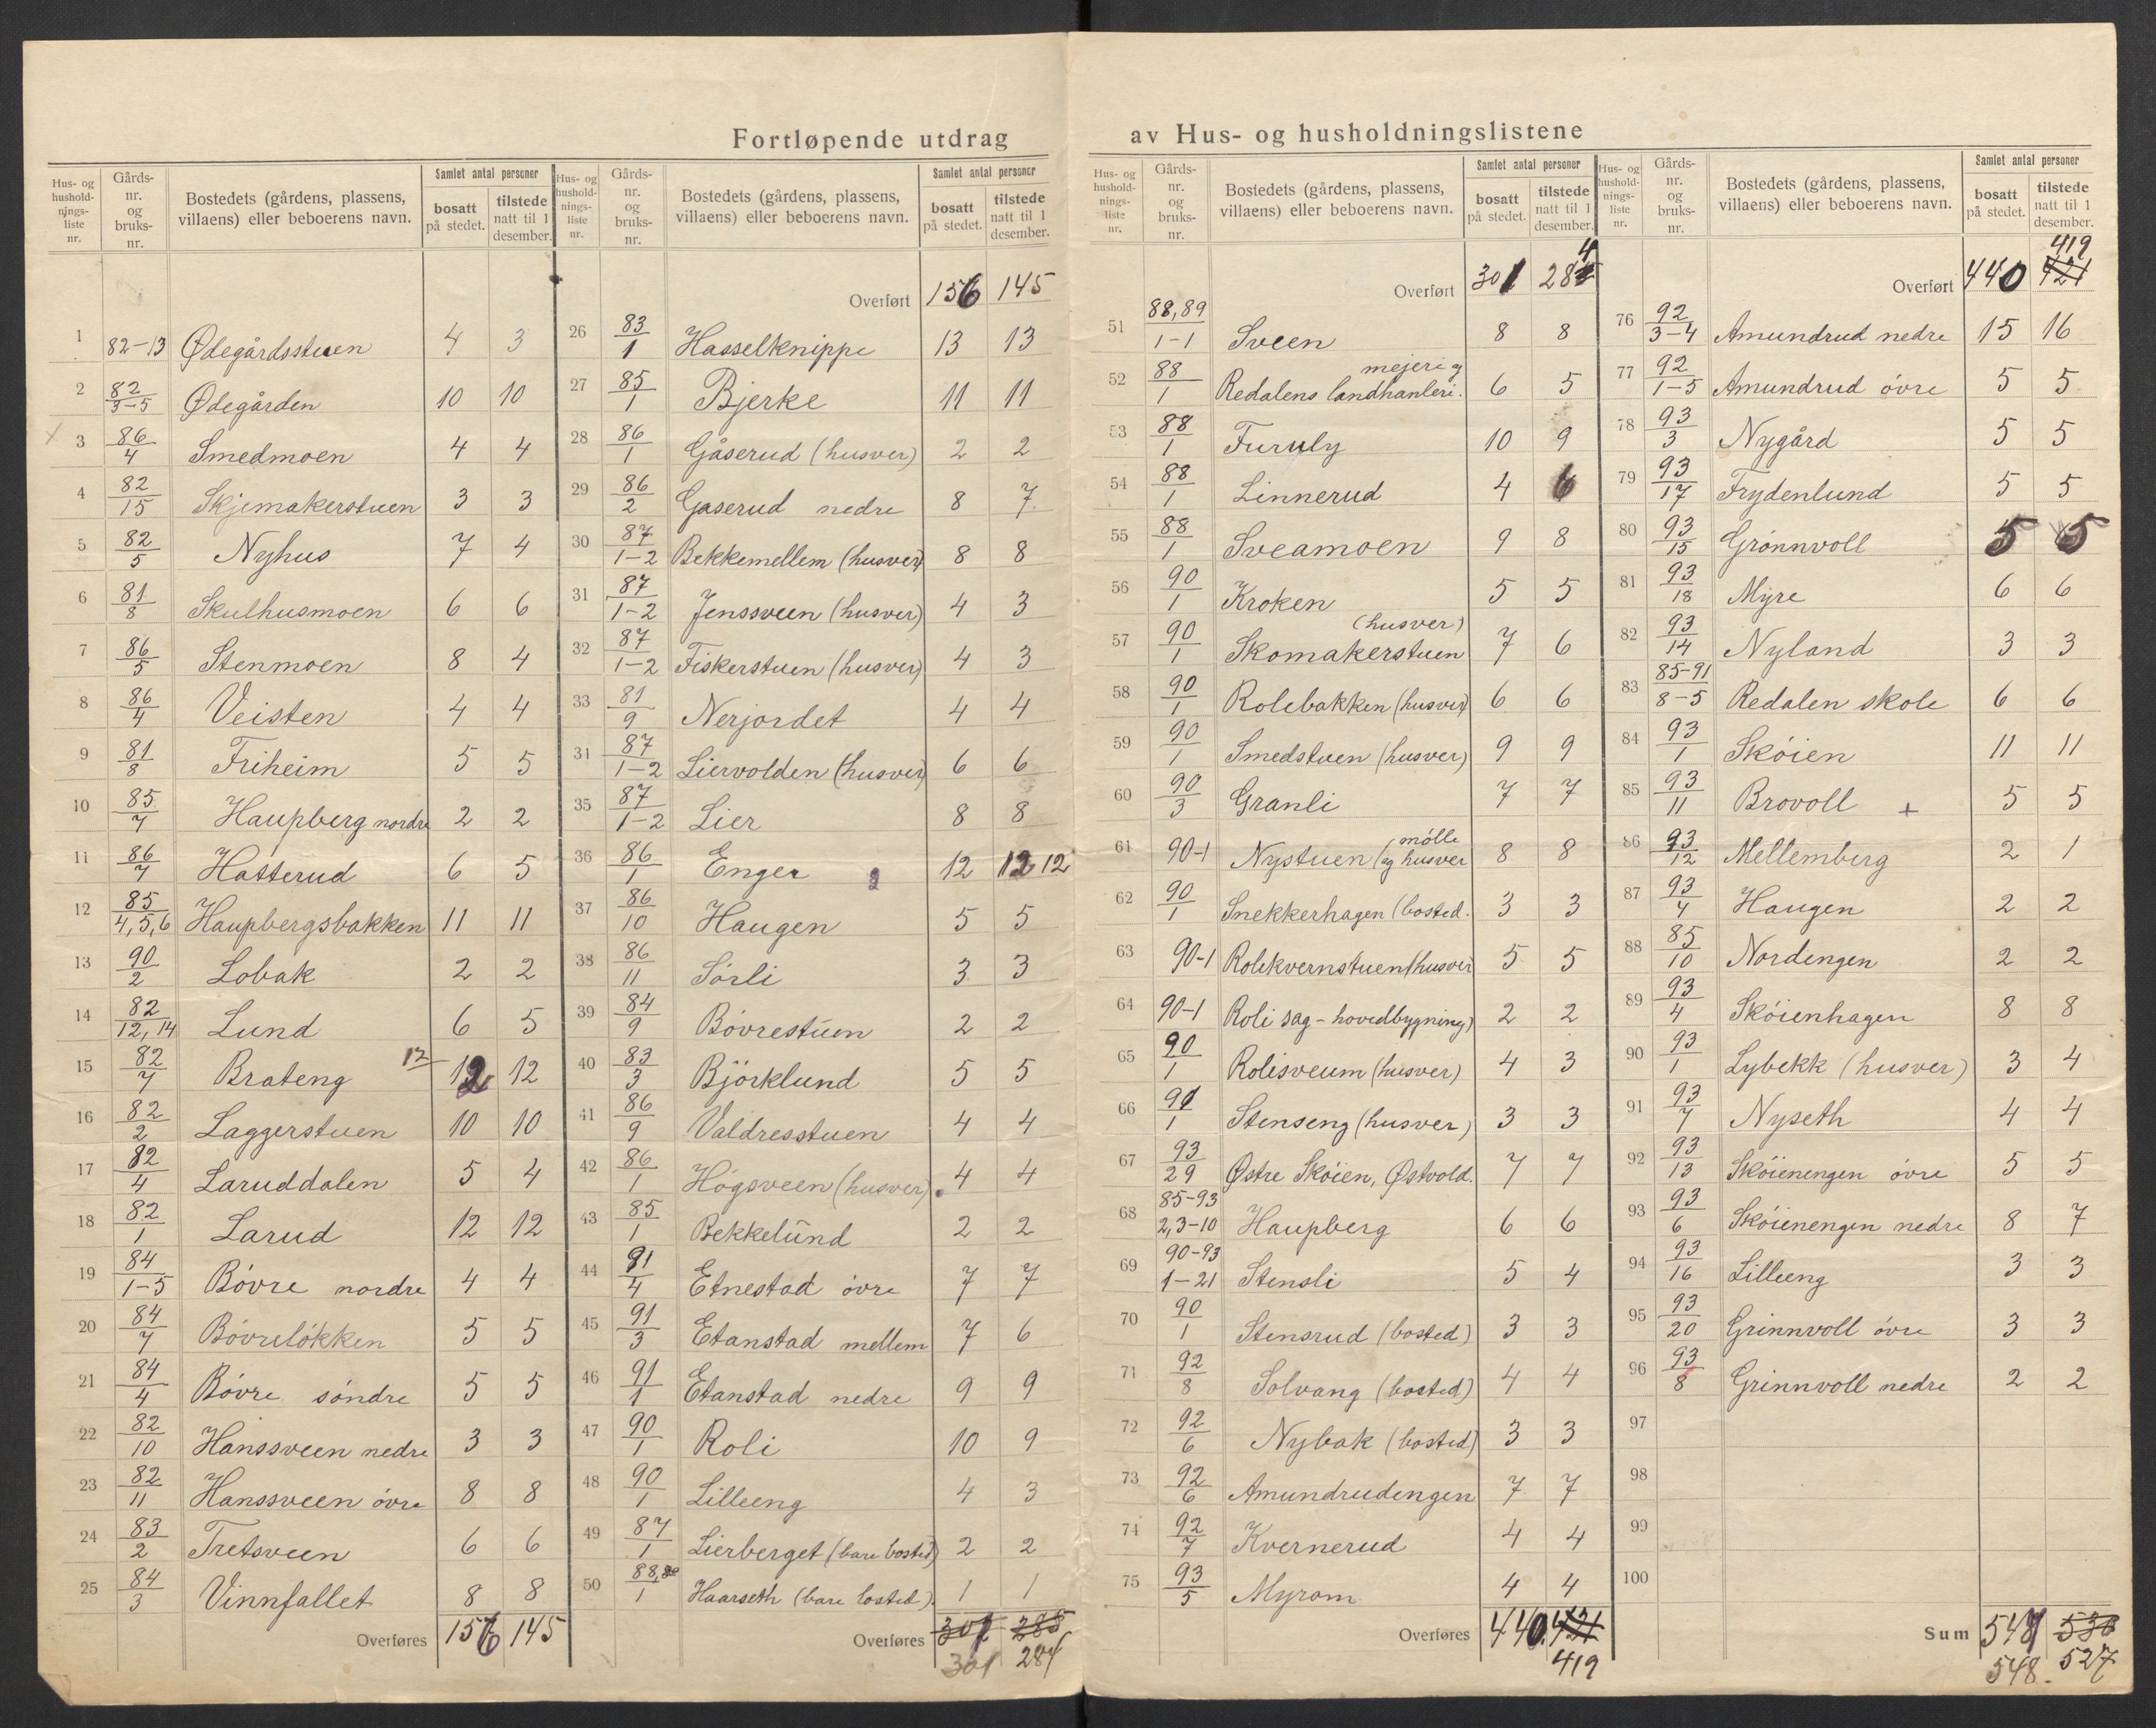 Fortløpende utdrag av Hus- og husholdningslistene
Hus- og hushold- nings- liste nr. | Gårds- nr. og bruks- nr. | Bostedets (gårdens, plassens, villaens) eller beboerens navn. | Samlet antal personer | bosatt på stedet. | tilstede natt til 1 desember.
1 82-13 Ødegårdsstuen 4 3
2 82/3-5 Ødegården 10 10
3 86/4 Smedmoen 4 4
4 82/15 Skjemakerstuen 3 3
5 82/5 Nyhus 7 4
6 81/8 Skulhusmoen 6 6
7 86/5 Stenmoen 8 4
8 86/4 Veisten 4 4
9 81/8 Friheim 5 5
10 85/7 Haupberg nordre 2 2
11 86/7 Hatterud 6 5
12 85/4,5,6 Haupbergsbakken 11 11
13 90/2 Lobak 2 2
14 82/12,14 Lund 6 5
15 82/7 Brateng 12 12 12
16 82/2 Laggerstuen 10 10
17 82/4 Laruddalen 5 4
18 82/1 Larud 12 12
19 84/1-5 Bövre nordre 4 4
20 84/7 Bövrelökken 5 5
21 84/4 Bövre söndre 5 5
22 82/10 Hanssveen nedre 3 3
23 82/11 Hanssveen övre 8 8
24 83/2 Tretsveen 6 6
25 84/3 Vinnfallet 8 8
Overføres 156 145
Hus- og hushold- nings- liste nr. | Gårds- nr. og bruks- nr. | Bostedets (gårdens, plassens, villaens) eller beboerens navn. | Samlet antal personer | bosatt på stedet. | tilstede natt til 1 desember.
Overført 156 145
26 83/1 Hasselknippe 13 13
27 85/1 Bjerke 11 11
28 86/1 Gåserud (husver) 2 2
29 86/2 Gaserud nedre 8 7
30 87/1-2 Bekkemellem (husver) 8 8
31 87/1-2 Jenssveen (husver) 4 3
32 87/1-2 Fiskerstuen (husver) 4 3
33 81/9 Nerjordet 4 4
34 87/1-2 Liervolden (husver) 6 6
35 87/1-2 Lier 8 8
36 86/1 Enger 12 12 12
37 86/10 Haugen 5 5
38 86/11 Sörli 3 3
39 84/9 Bövrestuen 2 2
40 83/3 Björklund 5 5
41 86/9 Valdresstuen 4 4
42 86/1 Högsveen (husver) 4 4
43 85/1 Bekkelund 2 2
44 91/4 Etnestad övre 7 7
45 91/3 Etanstad mellem 7 6
46 91/1 Etanstad nedre 9 9
47 90/1 Roli 10 9
48 90/1 Lilleeng 4 3
49 87/1 Lierberget (bare bosted) 2 2
50 88,/1 Haarseth (bare bosted) 1 1
Overføres 302 285
301 284
Hus- og hushold- nings- liste nr. | Gårds- nr. og bruks- nr. | Bostedets (gårdens, plassens, villaens) eller beboerens navn. | Samlet antal personer | bosatt på stedet. | tilstede natt til 1 desember.
Overført 301 284
51 88,89/1-1 Sveen 8 8
52 88/1 Redalens landhanleri. mejeri og 6 5
53 88/1 Furuly 10 9
54 88/1 Linnerud 4 6
55 88/1 Sveamoen 9 8
56 90/1 Kroken 5 5
57 90/1 Skomakerstuen (husver) 7 6
58 90/1 Rolebakken (husver) 6 6
59 90/1 Smedstuen (husver) 9 9
60 90/3 Granli 7 7
61 90-1 Nystuen (mölle og husver 8 8
62 90/1 Snekkerhagen (bosted. 3 3
63 90-1 Rolikvernstuen (husver 5 5
64 90-1 Roli sag - hovedbygning) 2 2
65 90/1 Rolisveum (husver) 4 3
66 91/1 Stenseng (husver) 3 3
67 93/29 Østre Sköien, Østvold. 7 7
68 85-93/2,3-10 Haupberg 6 6
69 90-93/1-21 Stensli 5 4
70 90/1 Stensrud (bosted) 3 3
71 92/8 Solvang (bosted) 4 4
72 92/6 Nybak (bosted) 3 3
73 92/6 Amundrudengen 7 7
74 92/7 Kvernerud 4 4
75 93/5 Myrom 4 4
Overføres 440 421
419
Hus- og hushold- nings- liste nr. | Gårds- nr. og bruks- nr. | Bostedets (gårdens, plassens, villaens) eller beboerens navn. | Samlet antal personer | bosatt på stedet. | tilstede natt til 1 desember.
419
Overført 440 421
76 92/3-4 Amundrud nedre 15 16
77 92/1-5 Amundrud övre 5 5
78 93/3 Nygård 5 5
79 93/17 Frydenlund 5 5
80 93/15 Grönnvoll 5 5
81 93/18 Myre 6 6
82 93/14 Nyland 3 3
83 85-91/8-5 Redalen skole 6 6
84 93/1 Sköien 11 11
85 93/11 Brovoll + 5 5
86 93/12 Mellemberg 2 1
87 93/4 Haugen 2 2
88 85/10 Nordengen 2 2
89 93/4 Sköienhagen 8 8
90 93/1 Lybekk (husver) 3 4
91 93/7 Nyseth 4 4
92 93/13 Sköienengen övre 5 5
93 93/6 Sköienengen nedre 8 7
94 93/16 Lilleeng 3 3
95 93/20 Grinnvoll övre 3 3
96 93/8 Grinnvoll nedre 2 2
97
98
99
100
Sum 530
548. 527